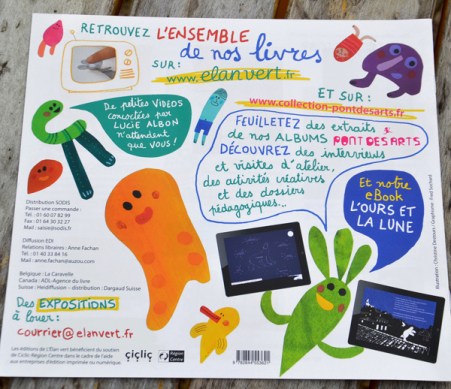 RETROUVEZ L'ENSEMBLE
de nos livres
SUR :
www.elanvert.fr
ET SUR :
www.collection-pontdesarts.fr
De petites VIDÉOS
concoctées par
LUCIE ALBON
n'attendent
que VOUS !
FEUILLETEZ des extraits
de nos ALBUMS PONT DES ARTS
DÉCOUVREZ des interviews
et visites d'atelier,
des activités créatives
et des dossiers
pédagogiques...
Et notre
eBook
L'OURS ET
LA LUNE
Distribution SODIS
Passer une commande :
Tel. : 01 60 07 82 99
Fax : 01 64 30 32 27
Diffusion EDI
Relations libraires : Anne Fachan
Tél. : 01 40 33 84 16
Mail : anne.fachan@auzou.com
Belgique : La Caravelle
Canada : ADL-Agence du livre
Suisse : Heidiffusion - distribution : Dargaud Suisse
Des EXPOSITIONS
à louer :
courrier@elanvert.fr
Les éditions de L'Élan vert bénéficient du soutien
de Ciclic-Région Centre dans le cadre de l'aide
aux entreprises d'édition imprimée ou numérique.
ciclic
Région
Centre